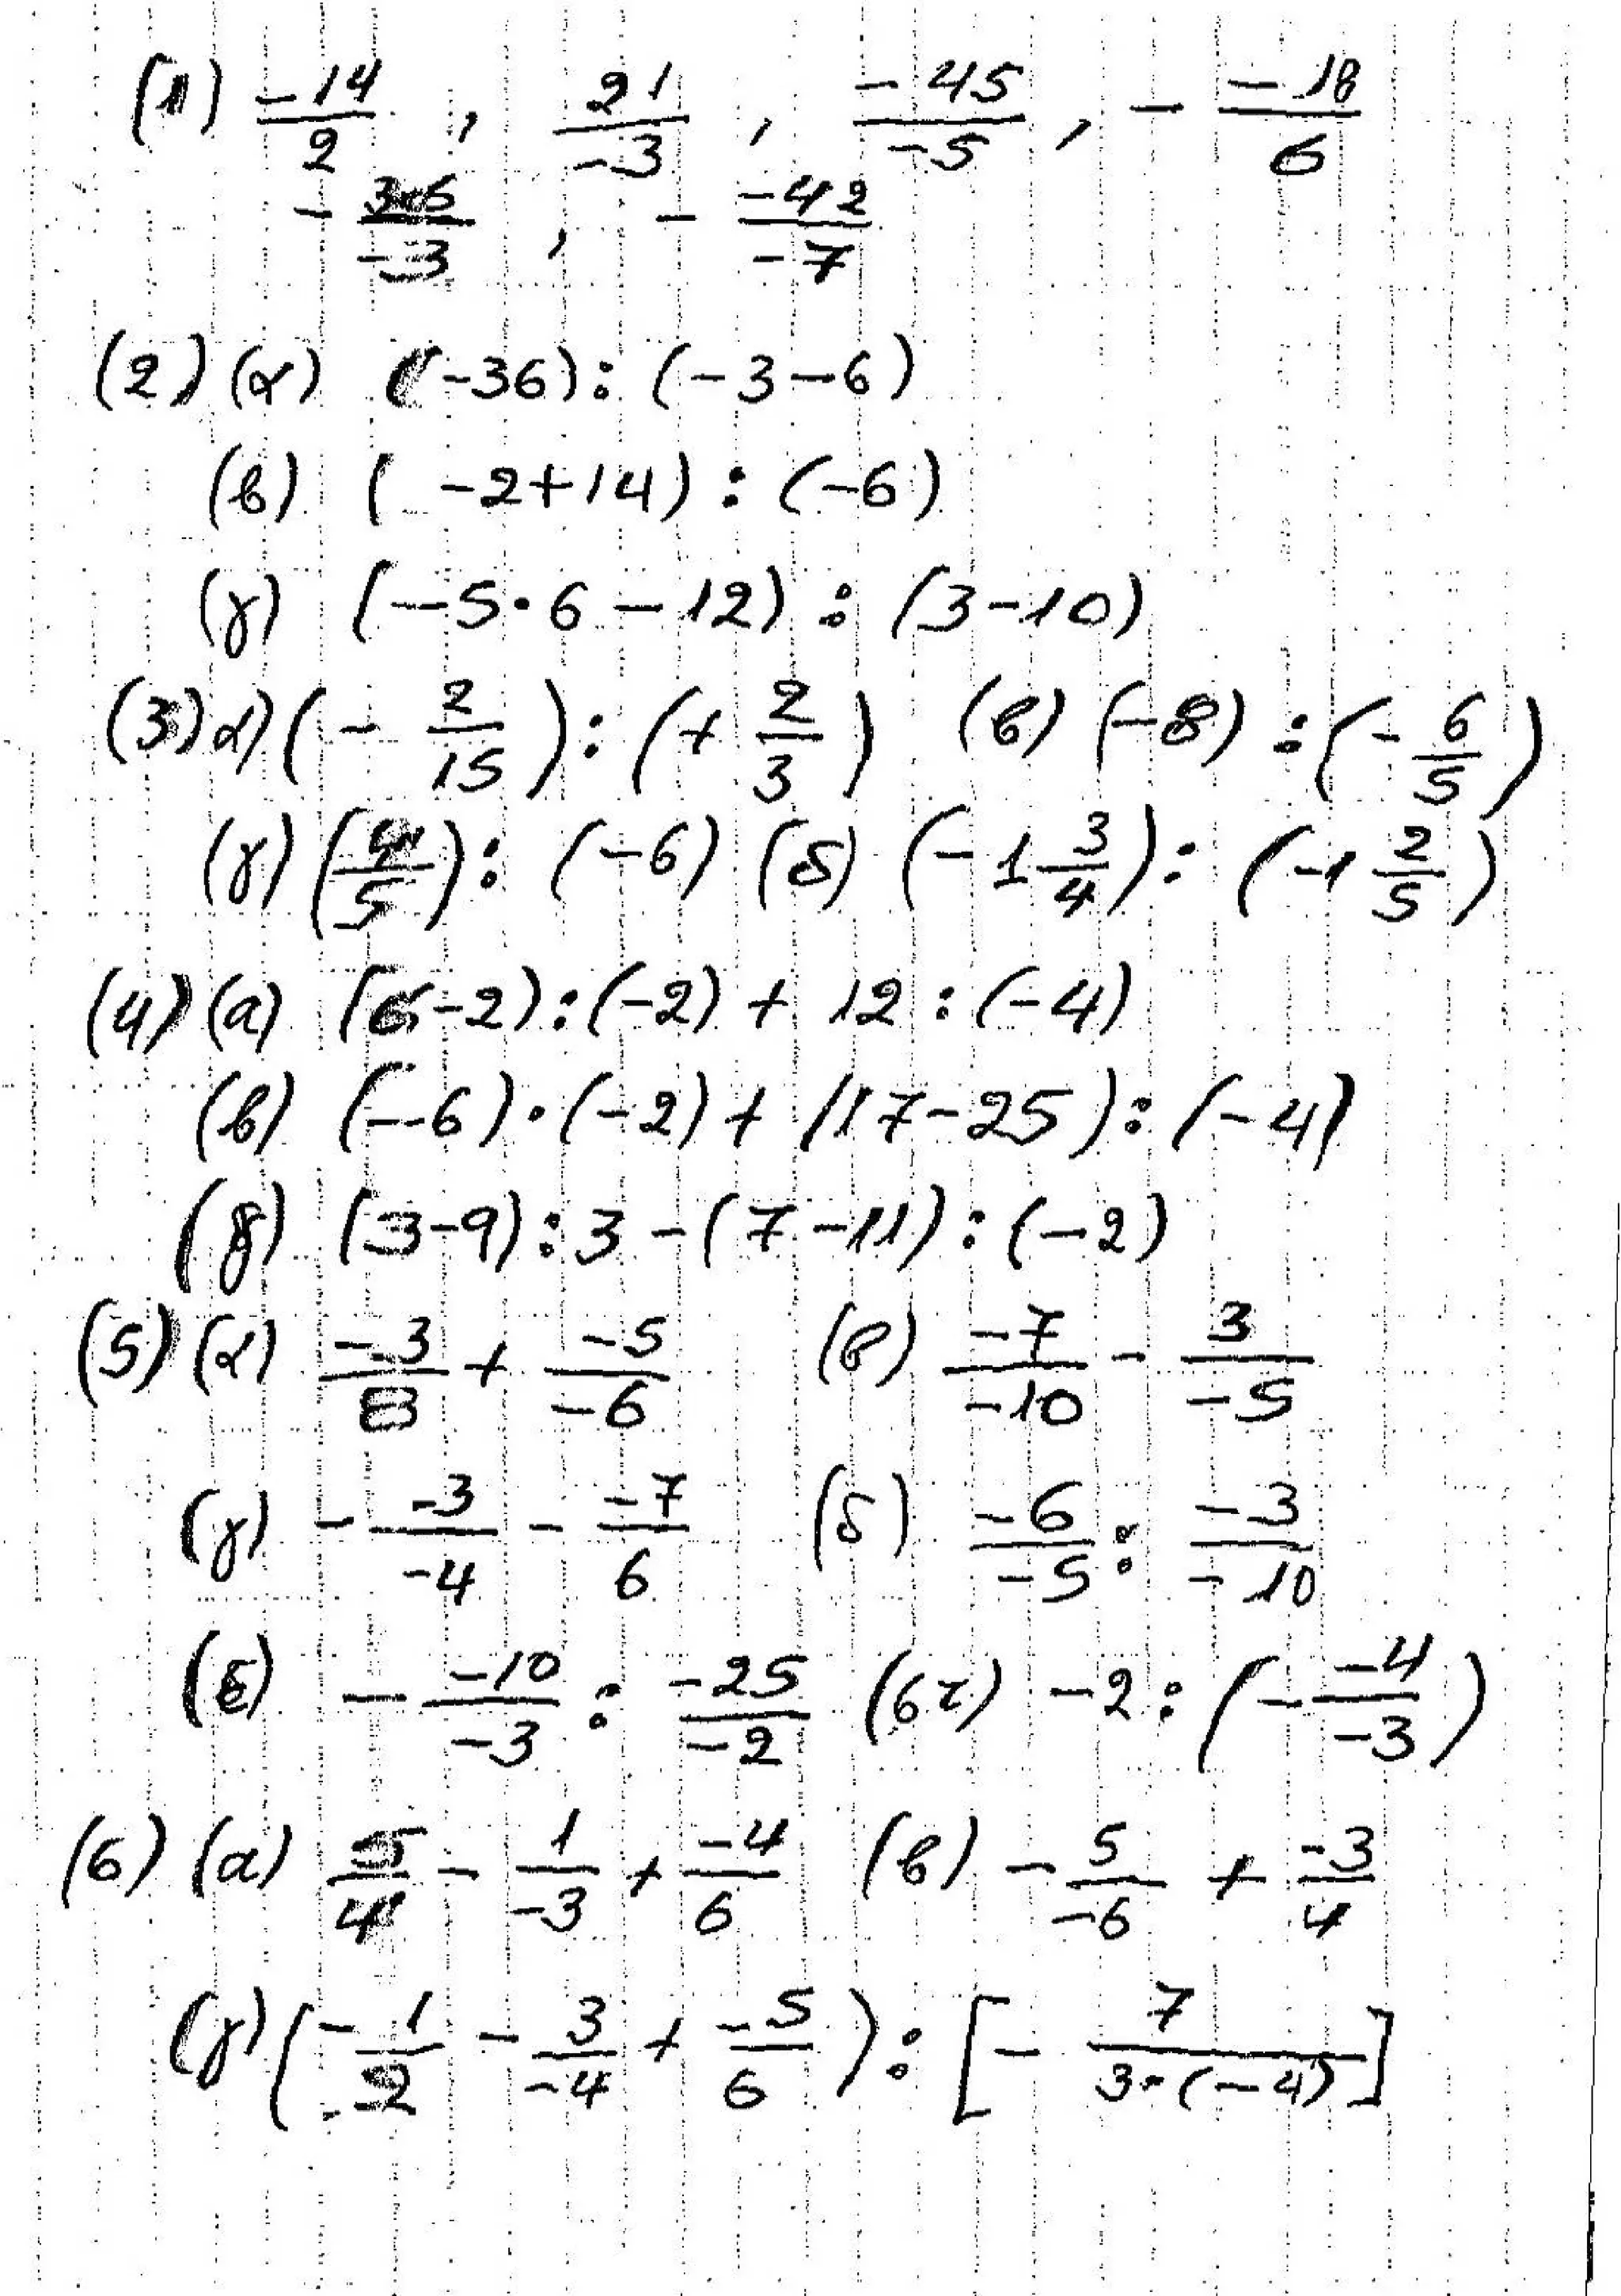 (1) -14/2 , 21/-3 , -45/-5 , - -18/6
- 36/-3 , - -42/-7
(2) (α) (-36) : (-3-6)
(β) (-2+14) : (-6)
(γ) (-5·6-12) : (3-10)
(3) α) (- 2/15) : (+ 2/3) (β) (-8) : (- 6/5)
(γ) (4/5) : (-6) (δ) (-1 3/4) : (-1 2/5)
(4) (α) (6-2) : (-2) + 12 : (-4)
(β) (-6)·(-2) + (17-25) : (-4)
(γ) (3-9) : 3 - (7-11) : (-2)
(5) (α) -3/8 + -5/-6 (β) -7/-10 - 3/-5
(γ) - -3/-4 - -7/6 (δ) -6/-5 : -3/-10
(ε) - -10/-3 : -25/-2 (στ) -2 : (- -4/-3)
(6) (α) 5/4 - 1/-3 + -4/6 (β) - 5/-6 + -3/4
(γ) (- 1/-2 - 3/-4 + -5/6) : [- 7/3·(-4)]